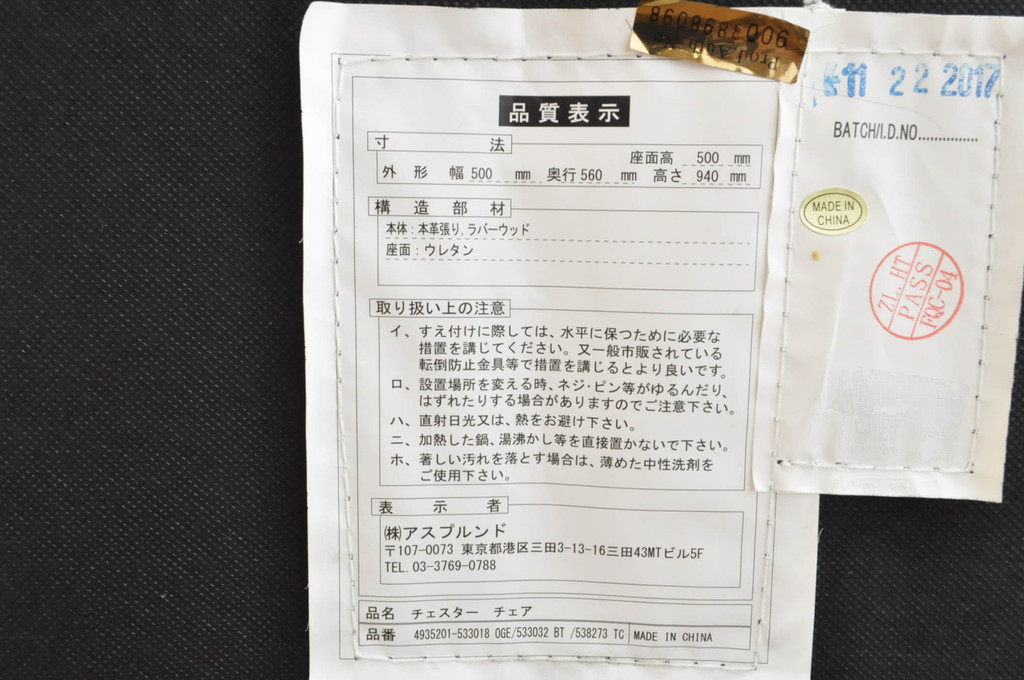 品質表示
寸法
座面高 500 mm
外形 幅 500 mm 奥行 560 mm 高さ 940 mm
構造部材
本体：本革張り, ラバーウッド
座面：ウレタン
取り扱い上の注意
イ、すえ付けに際しては、水平に保つために必要な
措置を講じてください。又一般市販されている
転倒防止金具等で措置を講じるとより良いです。
ロ、設置場所を変える時、ネジ・ピン等がゆるんだり、
はずれたりする場合がありますのでご注意下さい。
ハ、直射日光又は、熱をお避け下さい。
ニ、加熱した鍋、湯沸かし等を直接置かないで下さい。
ホ、著しい汚れを落とす場合は、薄めた中性洗剤を
ご使用下さい。
表示者
㈱アスプルンド
〒107-0073 東京都港区三田3-13-16三田43MTビル5F
TEL. 03-3769-0788
品名 チェスター チェア
品番 4935201-533018 OGE/533032 BT /538273 TC MADE IN CHINA
11 22 2017
BATCH/I.D.NO..............
MADE IN
CHINA
ZL. HT
PASS
FQC-04